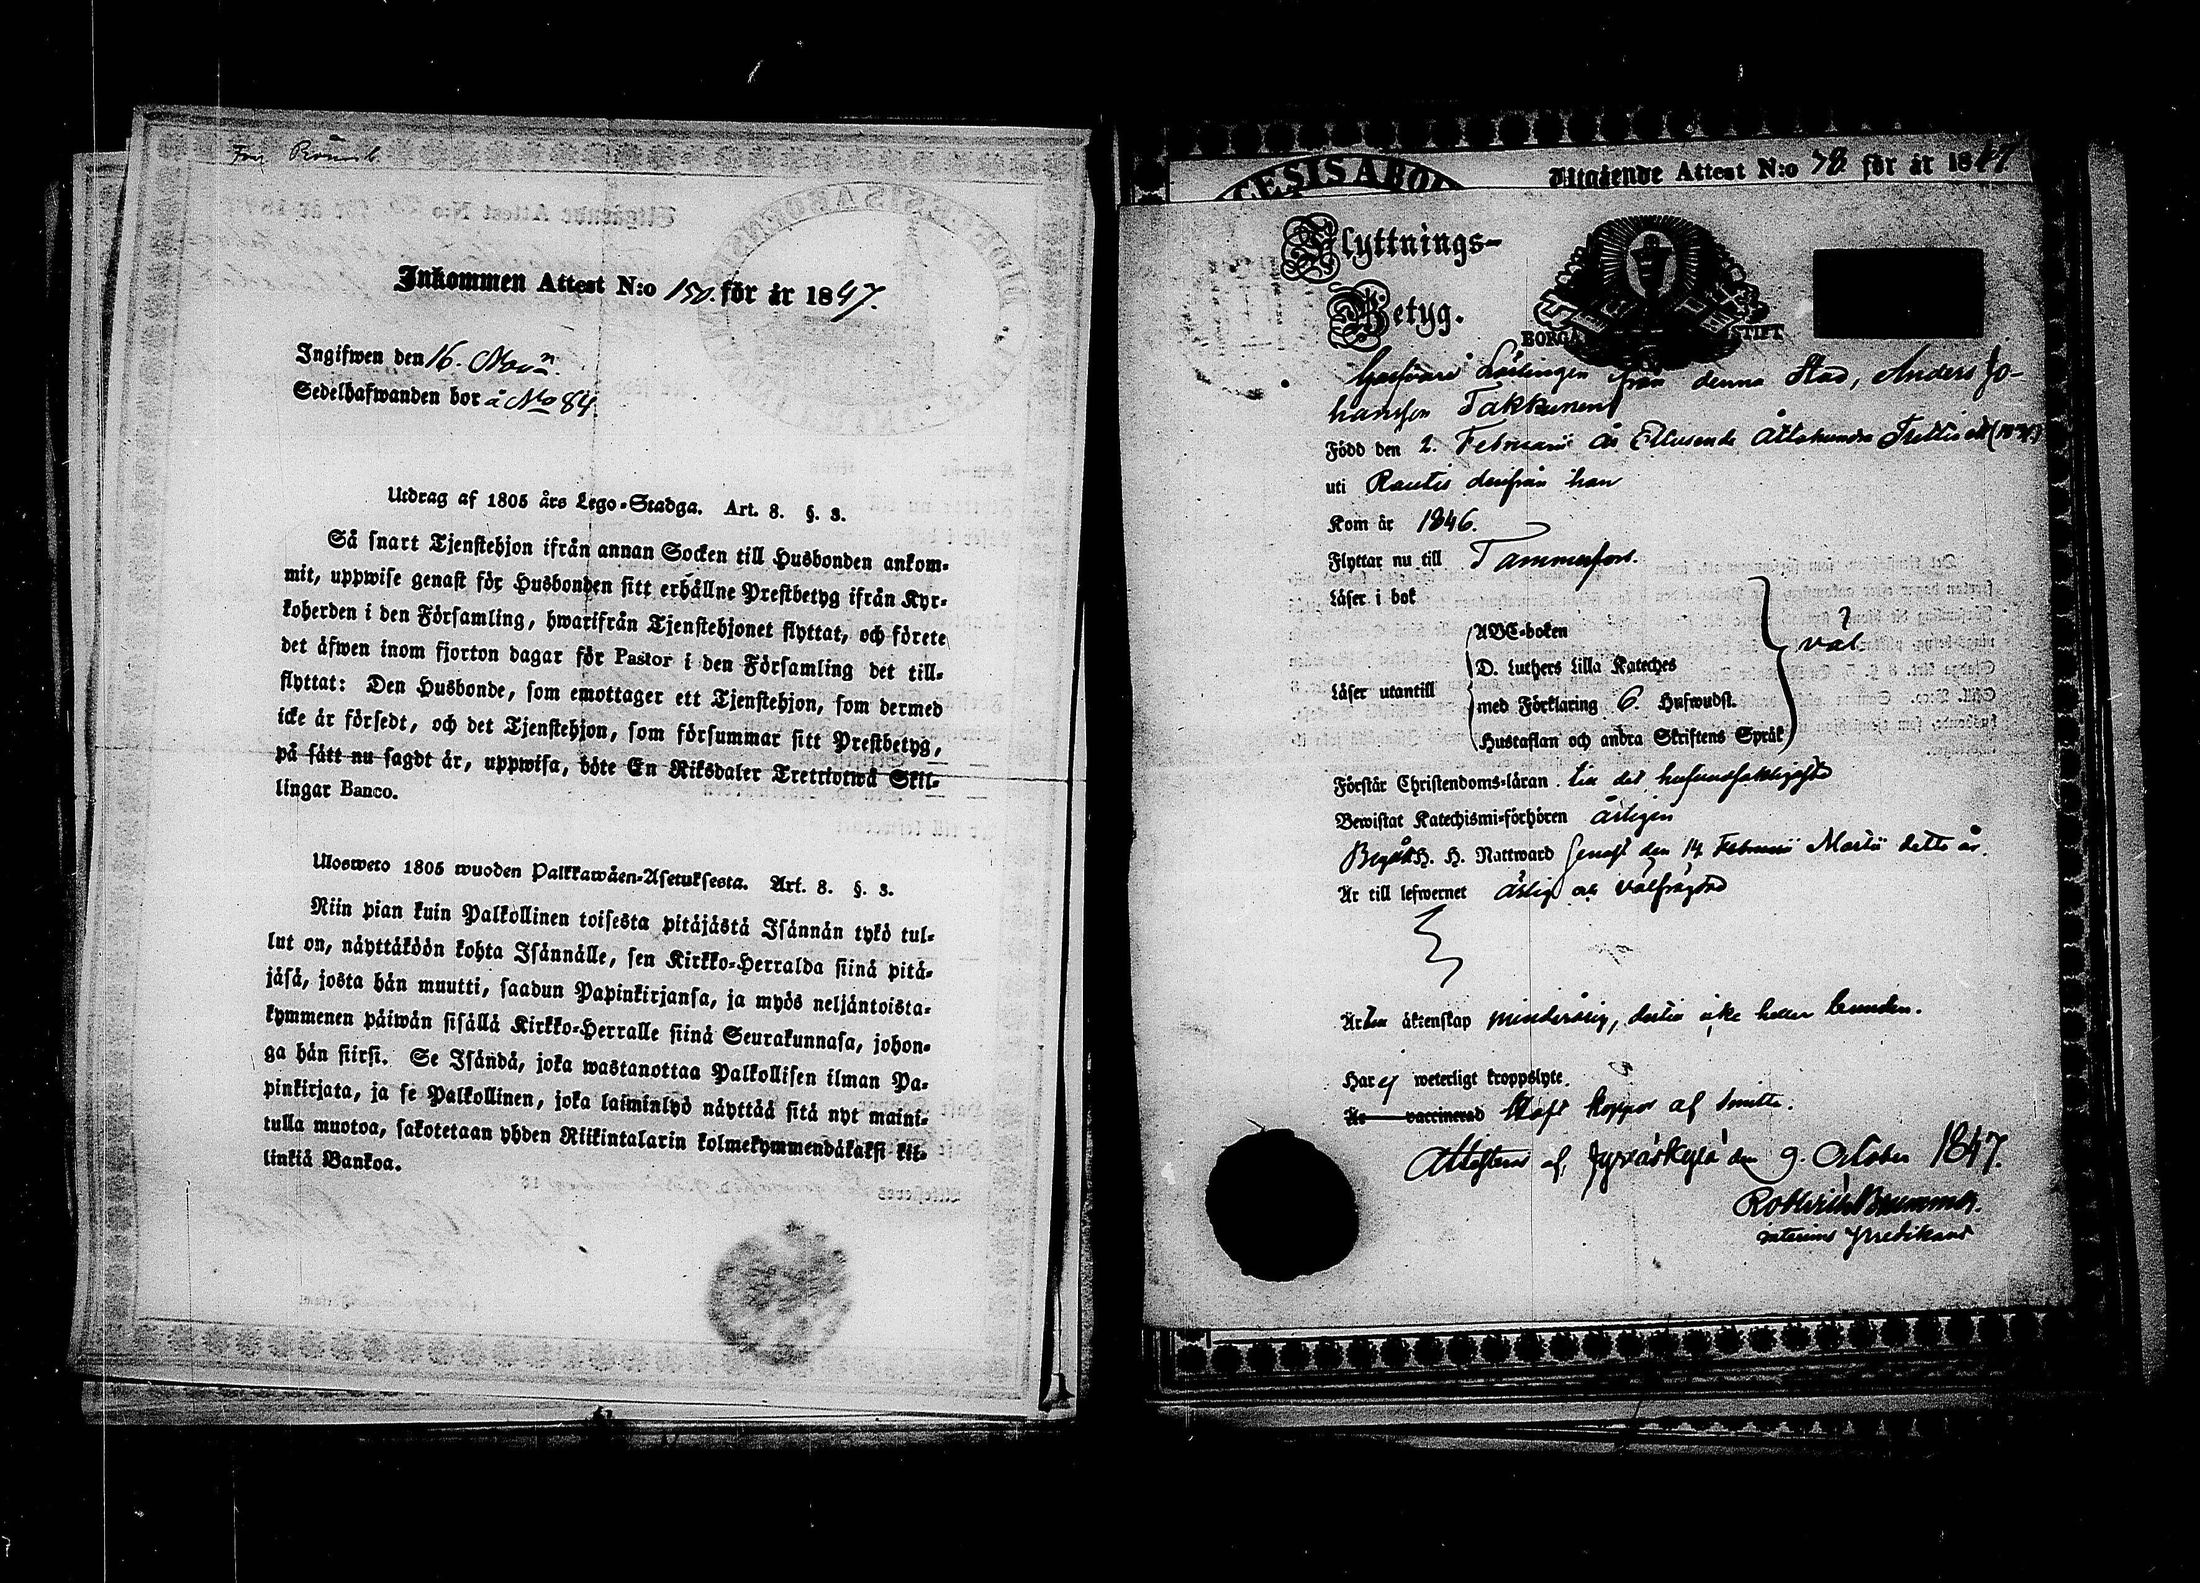 Inkommen Attest N:o 150. för år 1847.
Ingifwen den 16. Nov.
Sedelhafwanden bor å No 84.
Utdrag af 1805 års Lego-Stadga. Art. 8. §. 3.
Så snart Tjenstehjon ifrån annan Socken till Husbonden ankom-
mit, uppwise genast för Husbonden sitt erhållne Prestbetyg ifrån Kyr-
koherden i den Församling, hwarifrån Tjenstehjonet flyttat, och förete
det äfwen inom fjorton dagar för Pastor i den Församling det till-
flyttat: Den Husbonde, som emottager ett Tjenstehjon, som dermed
icke är försedt, och det Tjenstehjon, som försummar sitt Prestbetyg,
på sätt nu sagdt är, uppwisa, böte En Riksdaler Trettiotwå Skil-
lingar Banco.
Ulosweto 1805 wuoden Palkkawäen-Asetuksesta. Art. 8. §. 3.
Niin pian kuin Palkollinen toisesta pitäjästä Isännän tykö tul-
lut on, näyttäköön kohta Isännälle, sen Kirkko-Herralda siinä pitä-
jäsä, josta hän muutti, saadun Papinkirjansa, ja myös neljäntoista-
kymmenen päiwän sisällä Kirkko-Herralle siinä Seurakunnasa, johon-
ga hän siirsi. Se Isändä, joka wastanottaa Palkollisen ilman Pa-
pinkirjata, ja se Palkollinen, joka laiminlyö näyttää sitä nyt maini-
tulla muotoa, sakotetaan yhden Riikintalarin kolmekymmendäkaksi kil-
linkiä Bankoa.
Utgående Attest N:o 78 för år 1847
Flyttnings-
Betyg.
BORGÅ STIFT
Lärlingen från denna Stad, Anders Jo-
hansson Takkunen
Född den 2. Februarii år Ettusende Åttahundra Trettio
uti Rautis derifrån han
Kom år 1846.
Flyttar nu till Tammerfors.
Läser i bok
ABC-boken
D. Luthers Lilla Kateches
Läser utantill
med Förklaring 6. Hufwudst.
Hustaflan och andra Skriftens Språk
väl.
Förstår Christendoms-läran till det hufvudsakligaste
Bewistat Katechismi-förhören årligen
Begått H. H. Nattward senast den 14 Martii detta år.
Är till lefwernet ärlig och välfrägdad
Är till äktenskap minderårig, dertill icke heller bunden.
Har ej weterligt kroppslyte.
Är vaccinerad Haft koppor af smitta.
Attesteras af Jyväskylä den 9. October 1847.
Brummer.
interims Predikant